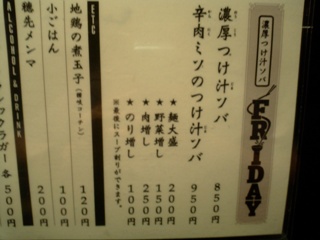 濃厚つけ汁ソバ
FRIDAY
濃厚つけ汁ソバ 850円
辛肉ミソのつけ汁ソバ 950円
★麺大盛 200円
★野菜増し 150円
★肉増し 250円
★のり増し 100円
※最後にスープ割りができます。
ETC
地鶏の煮玉子 120円
小ごはん 100円
穂先メンマ 200円
ALCOHOL & DRINK
各500円